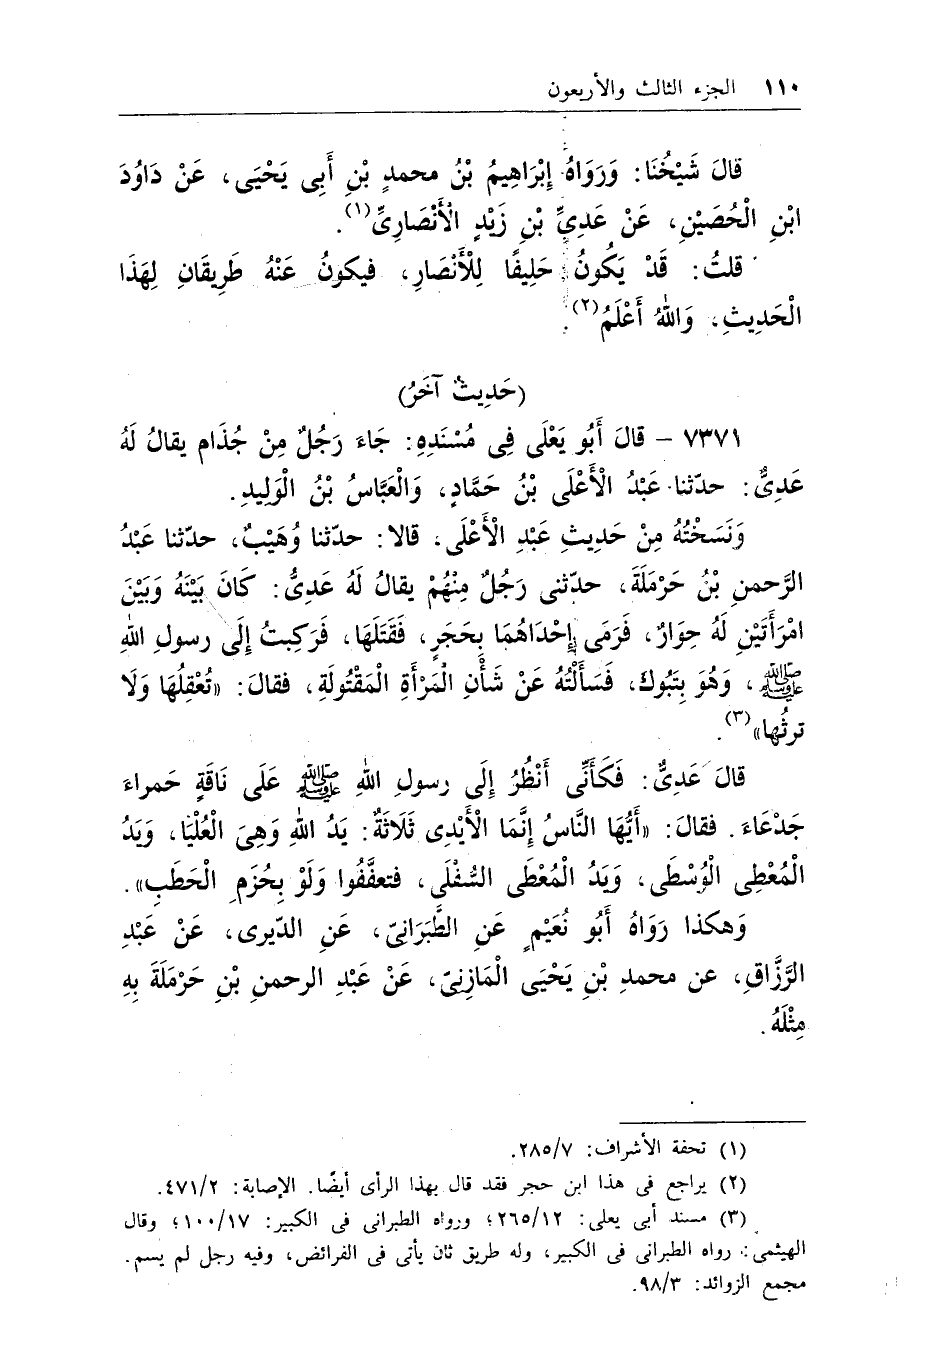 ١١٠ الجزء الثالث والأربعون
قالَ شَيْخُنَا: وَرَوَاهُ إِبْرَاهِيمُ بْنُ محمدٍ بْنِ أَبِى يَحْيَى، عَنْ دَاوُدَ
ابْنِ الْحُصَيْنِ، عَنْ عَدِيِّ بْنِ زَيْدٍ الْأَنْصَارِىِّ(١).
قلتُ: قَدْ يَكُونُ حَلِيفًا لِلْأَنْصَارِ، فيكونُ عَنْهُ طَرِيقَانِ لِهَذَا
الْحَدِيثِ، وَاللهُ أَعْلَمُ(٢).
(حَدِيثٌ آخَرُ)
٧٣٧١ – قالَ أَبُو يَعْلَى فِى مُسْنَدِهِ: جَاءَ رَجُلٌ مِنْ جُذَام يقالُ لَهُ
عَدِىٌّ: حدّثنا عَبْدُ الْأَعْلَى بْنُ حَمَّادٍ، وَالْعَبَّاسُ بْنُ الْوَلِيدِ.
وَنَسَخْتُهُ مِنْ حَدِيثِ عَبْدِ الْأَعْلَى، قالا: حدّثنا وُهَيْبٌ، حدّثنا عَبْدُ
الرَّحمنِ بْنُ حَرْمَلَةَ، حدّثنى رَجُلٌ مِنْهُمْ يقالُ لَهُ عَدِىُّ: كَانَ بَيْنَهُ وَبَيْنَ
امْرَأَتَيْنِ لَهُ حِوَارٌ، فَرَمَى إِحْدَاهُمَا بِحَجَرٍ، فَقَتَلَهَا، فَرَكِبتُ إِلَى رسولِ اللهِ
ﷺ، وَهُوَ بِتَبُوكَ، فَسَأَلْتُهُ عَنْ شَأْنِ الْمَرْأَةِ الْمَقْتُولَةِ، فقالَ: «تُعْقِلُهَا وَلَا
ترثُها»(٣).
قالَ عَدِىٌّ: فَكَأَنِّى أَنْظُرُ إِلَى رسولِ اللهِ ﷺ عَلَى نَاقَةٍ حَمراءَ
جَدْعَاءَ. فقالَ: «أَيُّهَا النَّاسُ إِنَّمَا الْأَيْدِى ثَلَاثَةٌ: يَدُ اللهِ وَهِىَ الْعُلْيَا، وَيَدُ
الْمُعْطِى الْوُسْطَى، وَيَدُ الْمُعْطَى السُّفْلَى، فتعفَّفُوا وَلَوْ بِحُزَمِ الْحَطَبِ».
وَهكذا رَوَاهُ أَبُو نُعَيْمٍ عَنِ الطَّبَرَانِىّ، عَنِ الدّيرى، عَنْ عَبْدِ
الرَّزَّاقِ، عن محمدِ بْنِ يَحْيَى الْمَازِنِىّ، عَنْ عَبْدِ الرحمنِ بْنِ حَرْمَلَةَ بِهِ
مِثْلَهُ.
(١) تحفة الأشراف: ٢٨٥/٧.
(٢) يراجع فى هذا ابن حجر فقد قال بهذا الرأى أيضًا. الإصابة: ٤٧١/٢.
(٣) مسند أبى يعلى: ٢٦٥/١٢؛ ورواه الطبرانى فى الكبير: ١٠٠/١٧؛ وقال
الهيثمى: رواه الطبرانى فى الكبير، وله طريق ثان يأتى فى الفرائض، وفيه رجل لم يسم.
مجمع الزوائد: ٩٨/٣.